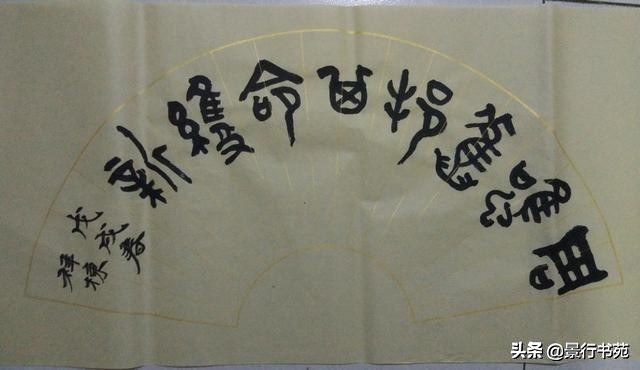 周雖舊邦其命維新
戊戌春
祥棟
头条 @景行书苑